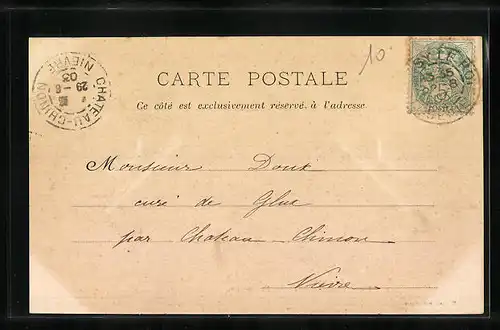 10.
CHATEAU-CHINON
29 -8
03
NIEVRE
CARTE POSTALE
Ce côté est exclusivement réservé à l'adresse.
Monsieur Doux
curé de Glux
par Chateau-Chinon
Nièvre